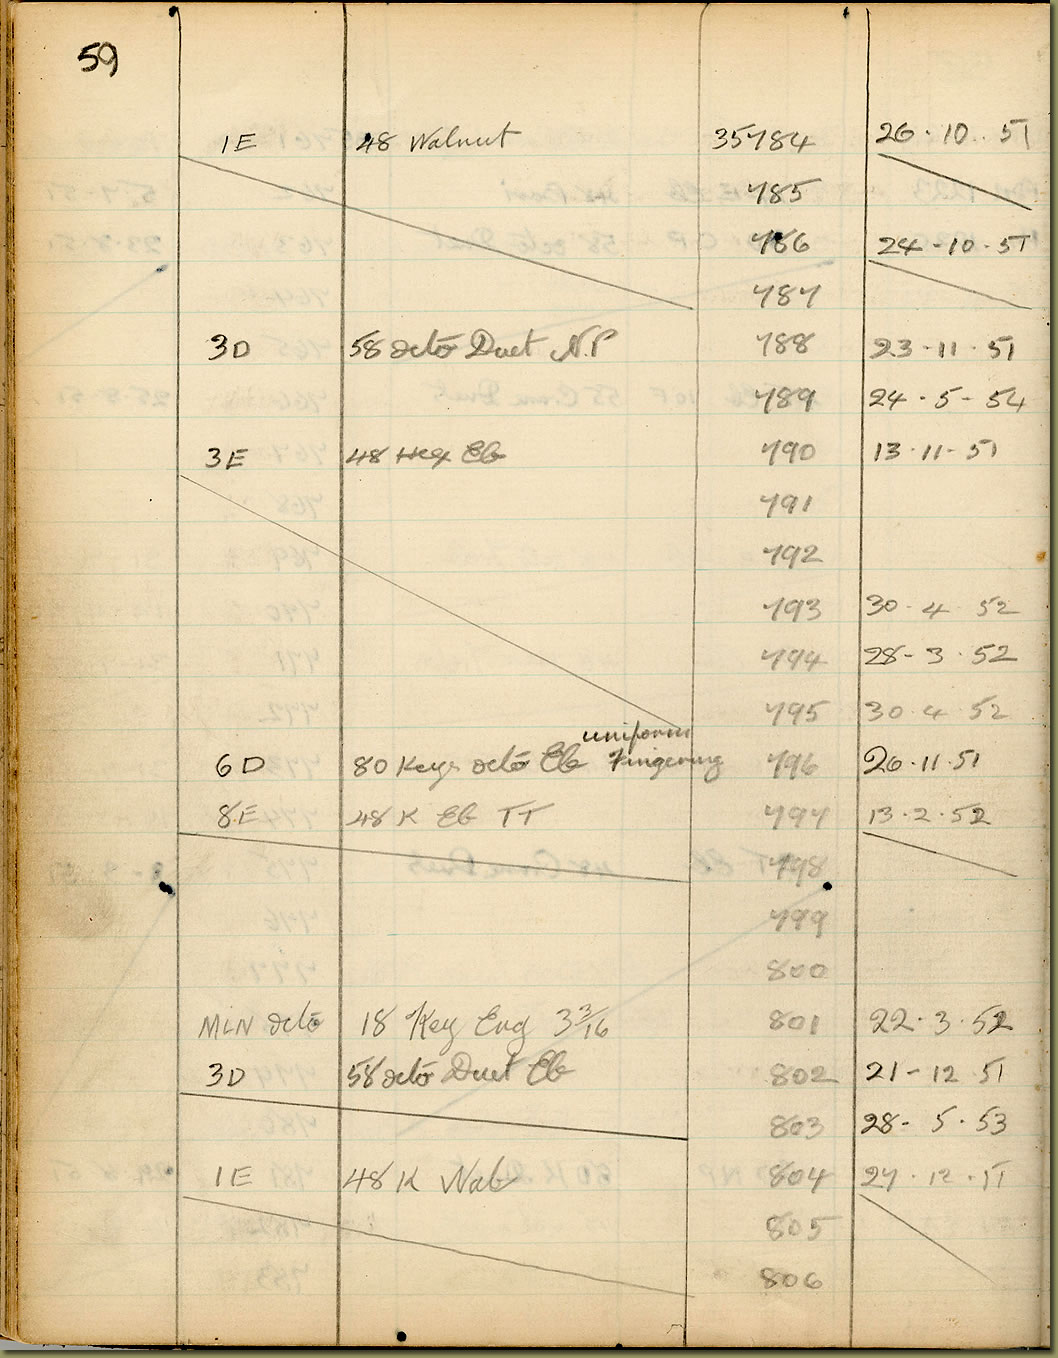 59
1E 48 Walnut 35784 26·10·51
785
786 24-10·51
787
3D 58 octo Duet N.P 788 23·11·51
789 24·5-54
3E 48 Hex Eb 790 13·11-51
791
792
793 30·4·52
794 28-3·52
795 30·4·52
uniform
6D 80 Keys octo Eb Fingering 796 26·11·51
8E 48 K Eb TT 797 13·2·52
798
799
800
MLN octo 18 Key Eng 3 3/16 801 22·3·52
3D 58 octo Duet Eb 802 21-12·51
803 28-5·53
1E 48 K 804 27·12·51
805
806